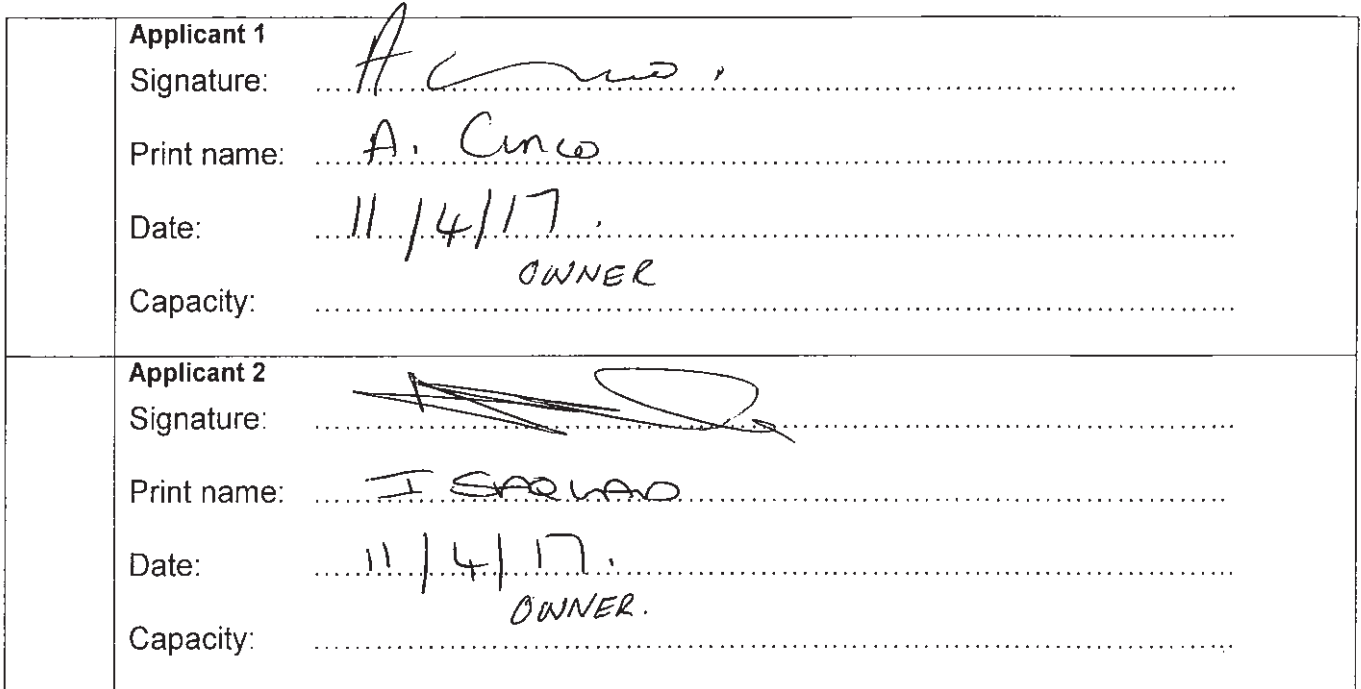 Applicant 1
Signature:
Print name: A. Cinco
Date: 11/4/17.
Capacity: OWNER
Applicant 2
Signature:
Print name: I
Date: 11/4/17.
Capacity: OWNER.